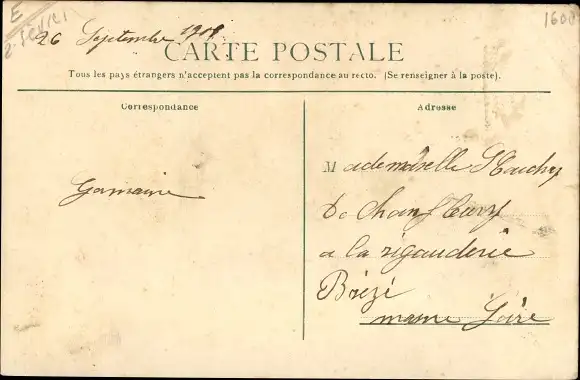 E
2. SEVRES
26 Septembre 1908
1600
CARTE POSTALE
Tous les pays étrangers n'acceptent pas la correspondance au recto. (Se renseigner à la poste).
Correspondance
Adresse
Germaine
Mademoiselle
De
a la rigauderie
Brézé
maine Loire